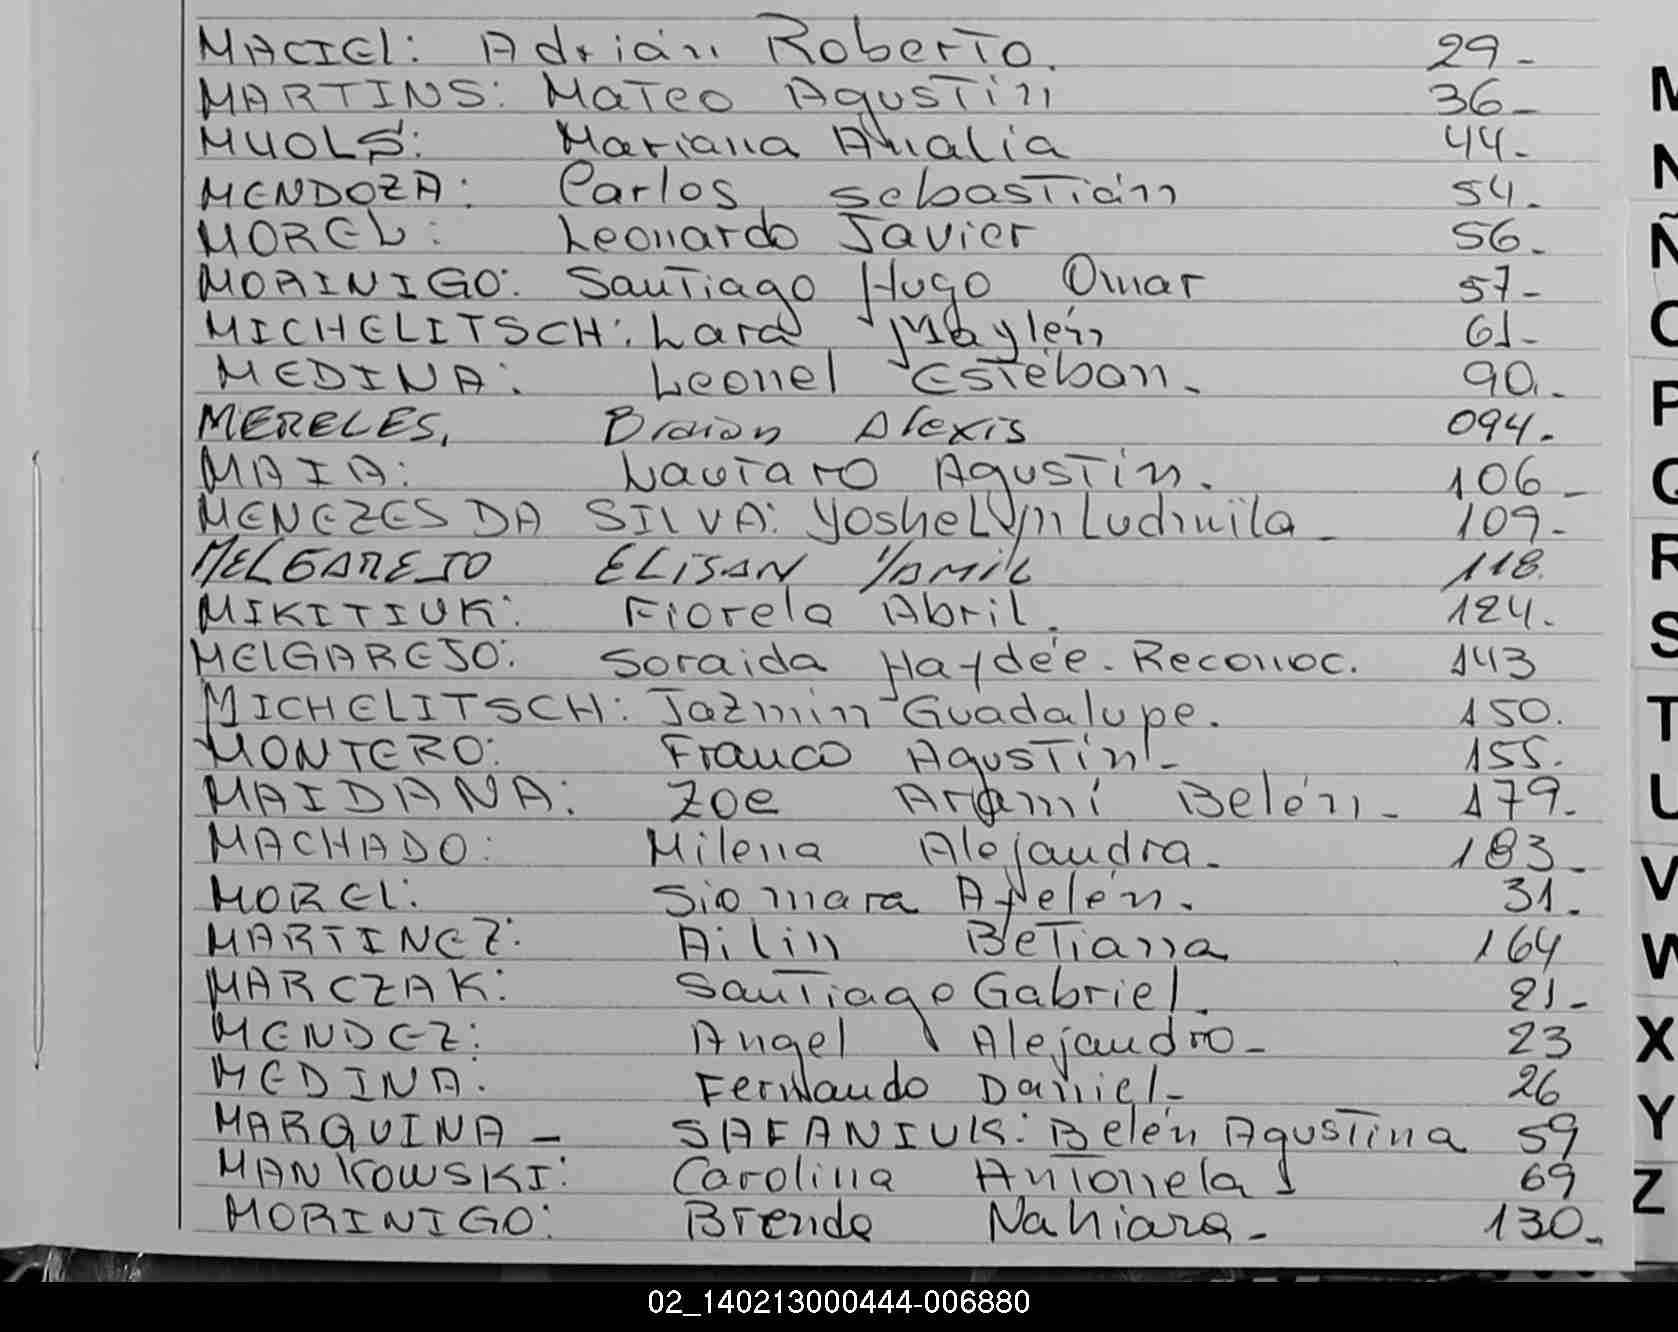 MACIEL: Adrián Roberto. 29-
MARTINS: Mateo Agustín 36-
MUOLS: Mariana Analia 44-
MENDOZA: Carlos Sebastián 54.
MOREL: Leonardo Javier 56-
MORINIGO: Santiago Hugo Omar 57-
MICHELITSCH: Lara Maylén 61-
MEDINA: Leonel Esteban. 90.-
MERELES, Braian Alexis 094.
MAIA: Lautaro Agustín. 106-
MENEZES DA SILVA: Yoshelyn Ludmila- 109-
MELGAREJO ELISAN YAMIL 118.
MIKITIUK: Fiorela Abril. 124.
MELGAREJO: Soraida Haydée. Reconoc. 143
MICHELITSCH: Jazmin Guadalupe. 150.
MONTERO: Franco Agustín- 155.
MAIDANA: Zoe Aramí Belén- 179-
MACHADO: Milena Alejandra- 183-
MOREL: Siomara Ayelén. 31.
MARTINEZ: Ailin Betiana 164
MARCZAK: Santiago Gabriel. 21-
MENDEZ: Angel Alejandro- 23
MEDINA: Fernando Daniel- 26
MARQUINA - SAFANIUK: Belén Agustina 59
MANKOWSKI: Carolina Antonela 69
MORINIGO: Brenda Nahiara- 130-
M
N
Ñ
O
P
Q
R
S
T
U
V
W
X
Y
Z
02_140213000444-006880